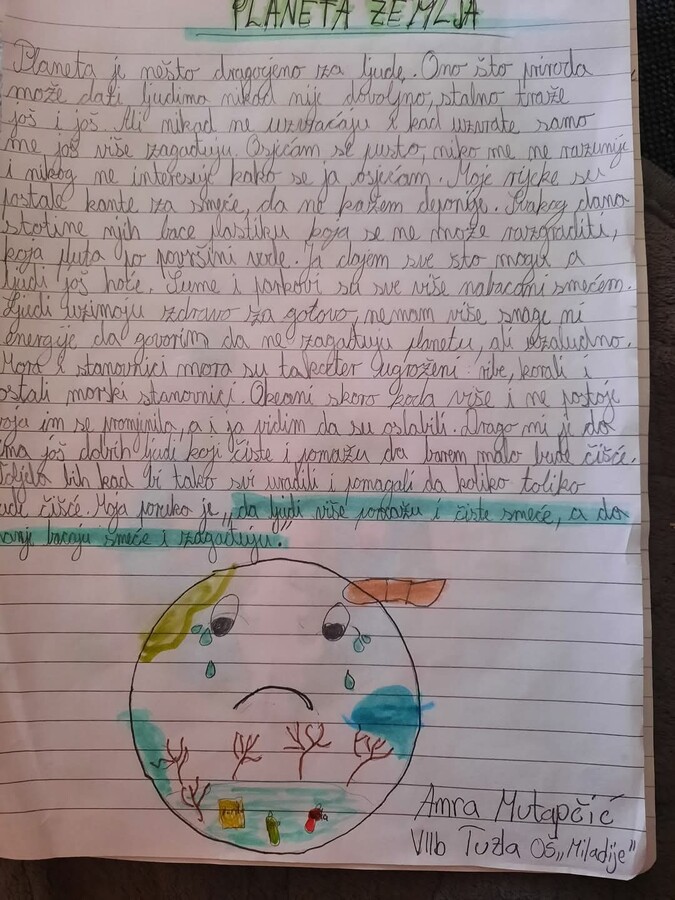 PLANETA ZEMLJA
Planeta je nešto dragocjeno za ljude. Ono što priroda
može dati ljudima nikad nije dovoljno, stalno traže
još i još. Ali nikad ne uzvraćaju i kad uzvrate samo
me još više zagađuju. Osjećam se pusto, niko me ne razumije
i nikog ne interesuje kako se ja osjećam. Moje rijeke su
postale kante za smeće, da ne kažem deponije. Svakog dana
stotine njih bace plastiku koja se ne može razgraditi,
koja pluta po površini vode. Ja dajem sve što mogu a
ljudi još hoće. Šume i parkovi su sve više nabacani smećem.
Ljudi uzimaju zdravo za gotovo, nemam više snage ni
energije da govorim da ne zagađuju planetu, ali uzaludno.
Mora i stanovnici mora su također ugroženi: ribe, korali i
ostali morski stanovnici. Okeani skoro kada više i ne postoje
boja im se promjnila, a i ja vidim da su oslabili. Drago mi je da
ima još dobrih ljudi koji čiste i pomažu da barem malo bude čišće.
Voljela bih kad bi tako svi uradili i pomagali da koliko toliko
bude čišće. Moja poruka je „da ljudi više pomažu i čiste smeće, a da
manje bacaju smeće i zagađuju."
Amra Mutapčić
VIIb Tuzla OŠ „Miladije"